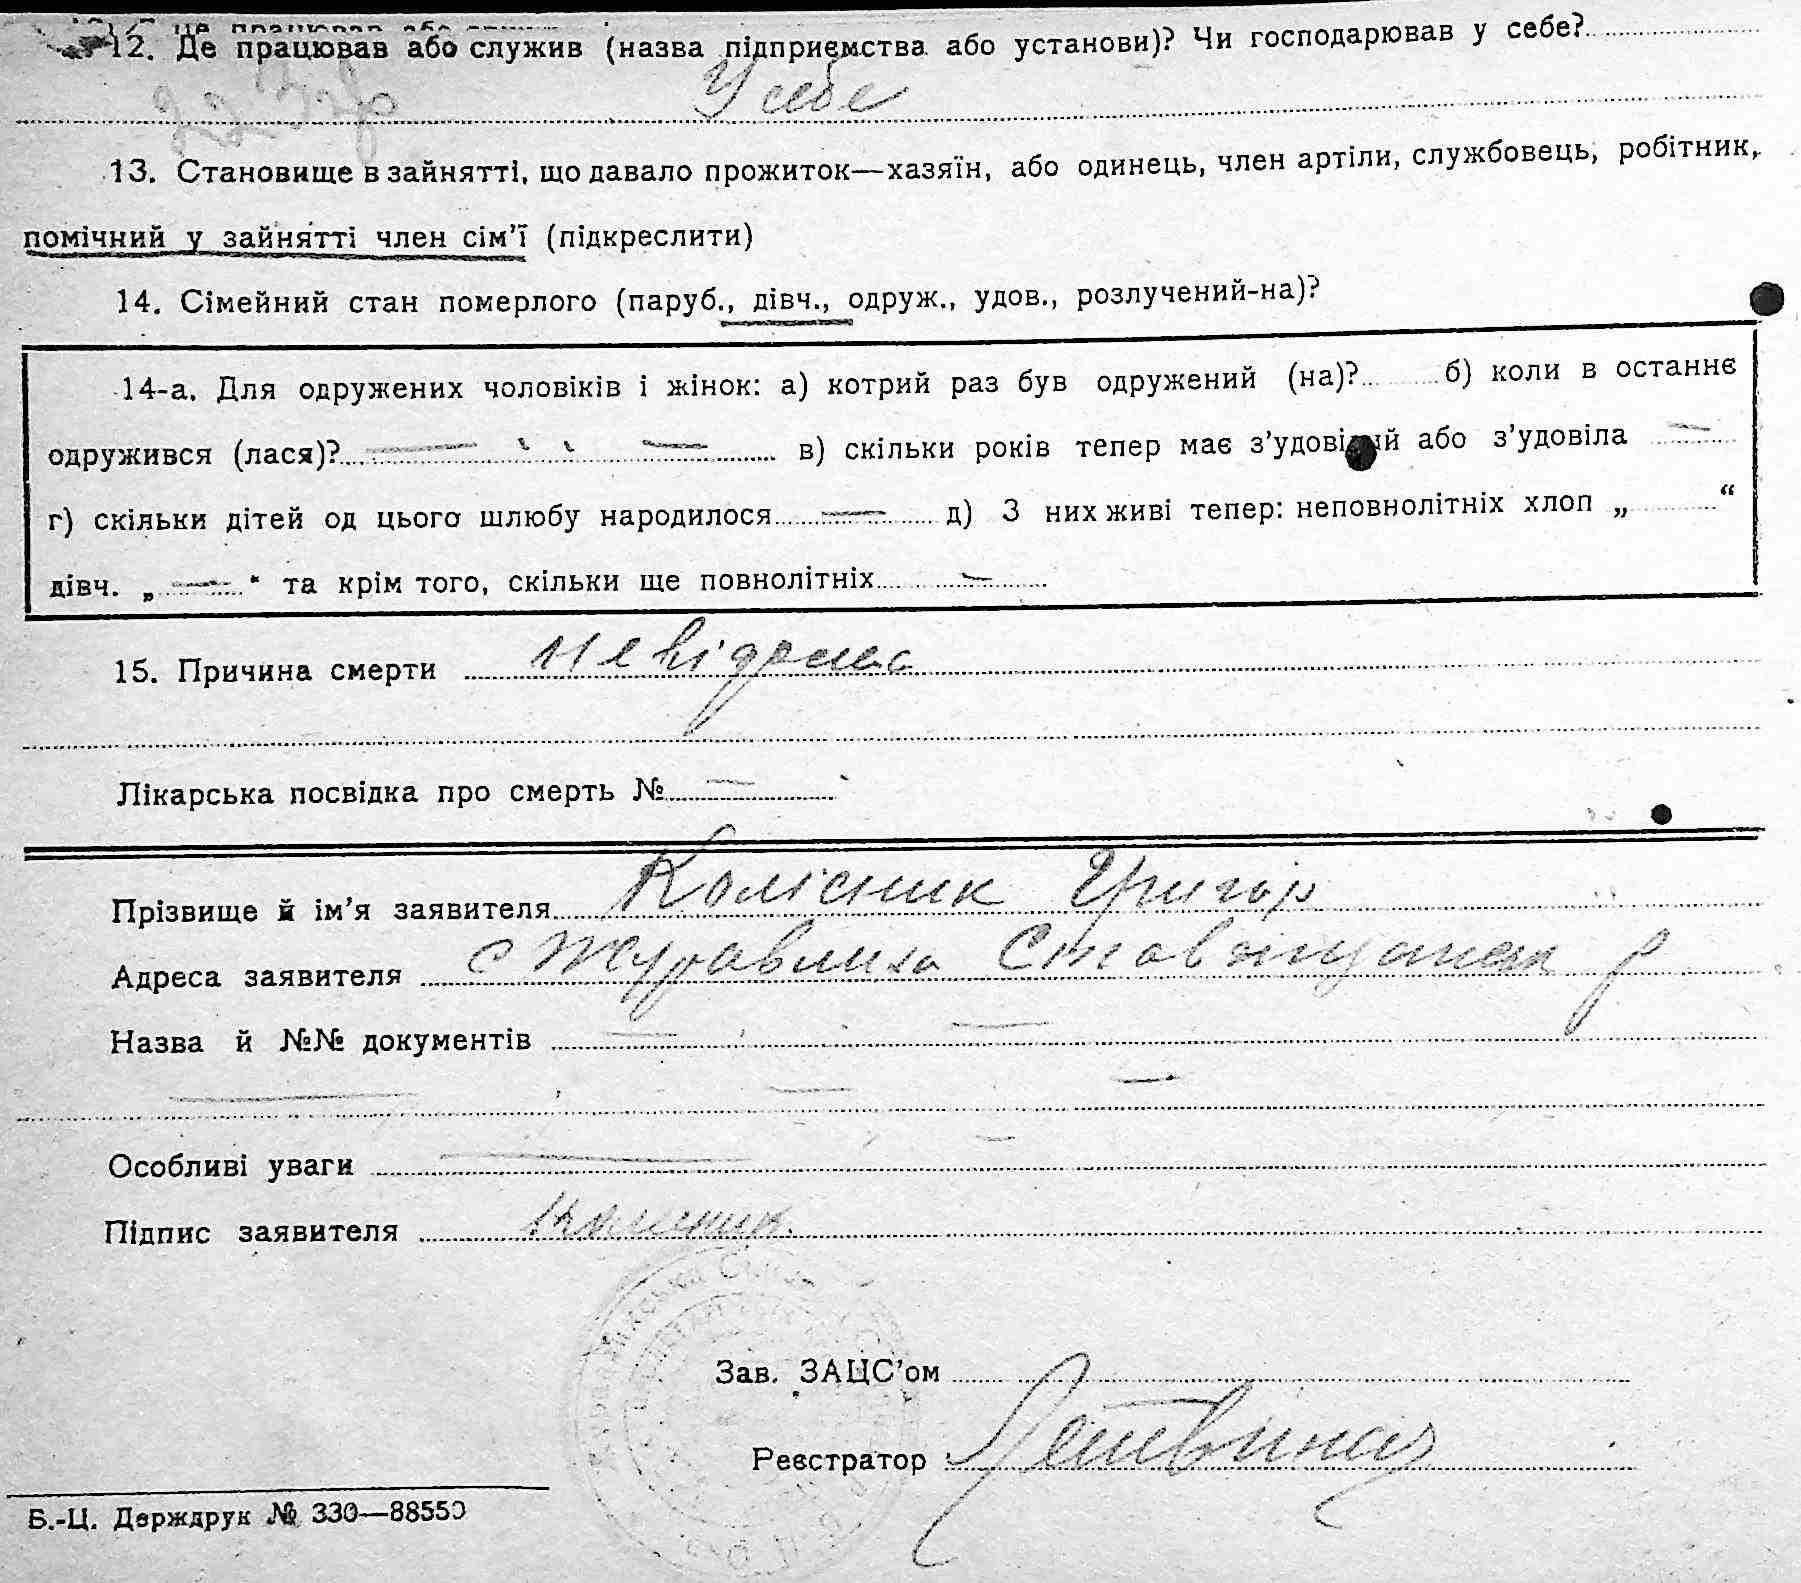 12. Де працював або служив (назва підприємства або установи)? Чи господарював у себе?
У себе
13. Становище в зайнятті, що давало прожиток—хазяїн, або одинець, член артіли, службовець, робітник,
помічний у зайнятті член сім'ї (підкреслити)
14. Сімейний стан померлого (паруб., дівч., одруж., удов., розлучений-на)?
14-а. Для одружених чоловіків і жінок: а) котрий раз був одружений (на)? б) коли в останнє
одружився (лася)? — — в) скільки років тепер має з'удовілий або з'удовіла —
г) скільки дітей од цього шлюбу народилося — д) З них живі тепер: неповнолітніх хлоп „ “
дівч. „ — “ та крім того, скільки ще повнолітніх —
15. Причина смерти невідома
Лікарська посвідка про смерть № —
Прізвище й ім'я заявителя Колісник Григор
Адреса заявителя с Журавлиха Ставищанськ р
Назва й №№ документів — —
— — —
Особливі уваги —
Підпис заявителя Колісник
Зав. ЗАЦС'ом
Реєстратор
Б.-Ц. Держдрук № 330—88550